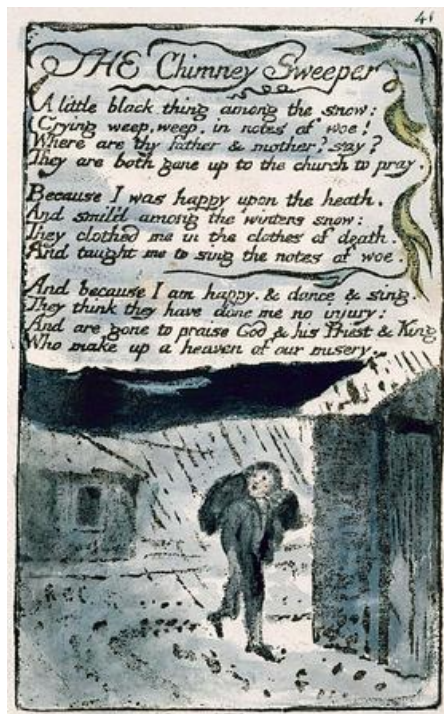 41
THE Chimney Sweeper
A little black thing among the snow:
Crying weep, weep, in notes of woe!
Where are thy father & mother? say?
They are both gone up to the church to pray.
Because I was happy upon the heath.
And smil'd among the winters snow:
They clothed me in the clothes of death.
And taught me to sing the notes of woe.
And because I am happy, & dance & sing.
They think they have done me no injury:
And are gone to praise God & his Priest & King
Who make up a heaven of our misery.